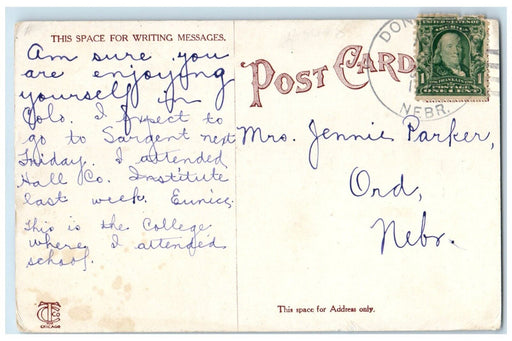 THIS SPACE FOR WRITING MESSAGES.
Am sure you
are enjoying
yourself in
Colo. I expect to
go to Sargent next
Friday. I attended
Hall Co. Institute
last week. Eunice.
This is the College
where I attended
school.
CHICAGO
POST CARD
DON
NEBR.
UNITED STATES OF
AMERICA
1 1
POSTAGE
ONE CENT
Mrs. Jennie Parker,
Ord,
Nebr.
This space for Address only.